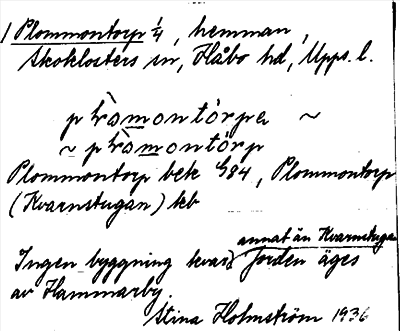 1 Plommontorp 1/4, hemman,
Skoklosters sn, Håbo hd, Upps. l.
plòmontòrpa ~
~ plòmontòrp
Plommontorp bek G84, Plommontorp
(Kvarnstugan) kb
annat än Kvarnstuga
Ingen byggning kvar. Jorden äges
av Hammarby.
Stina Holmström 1936